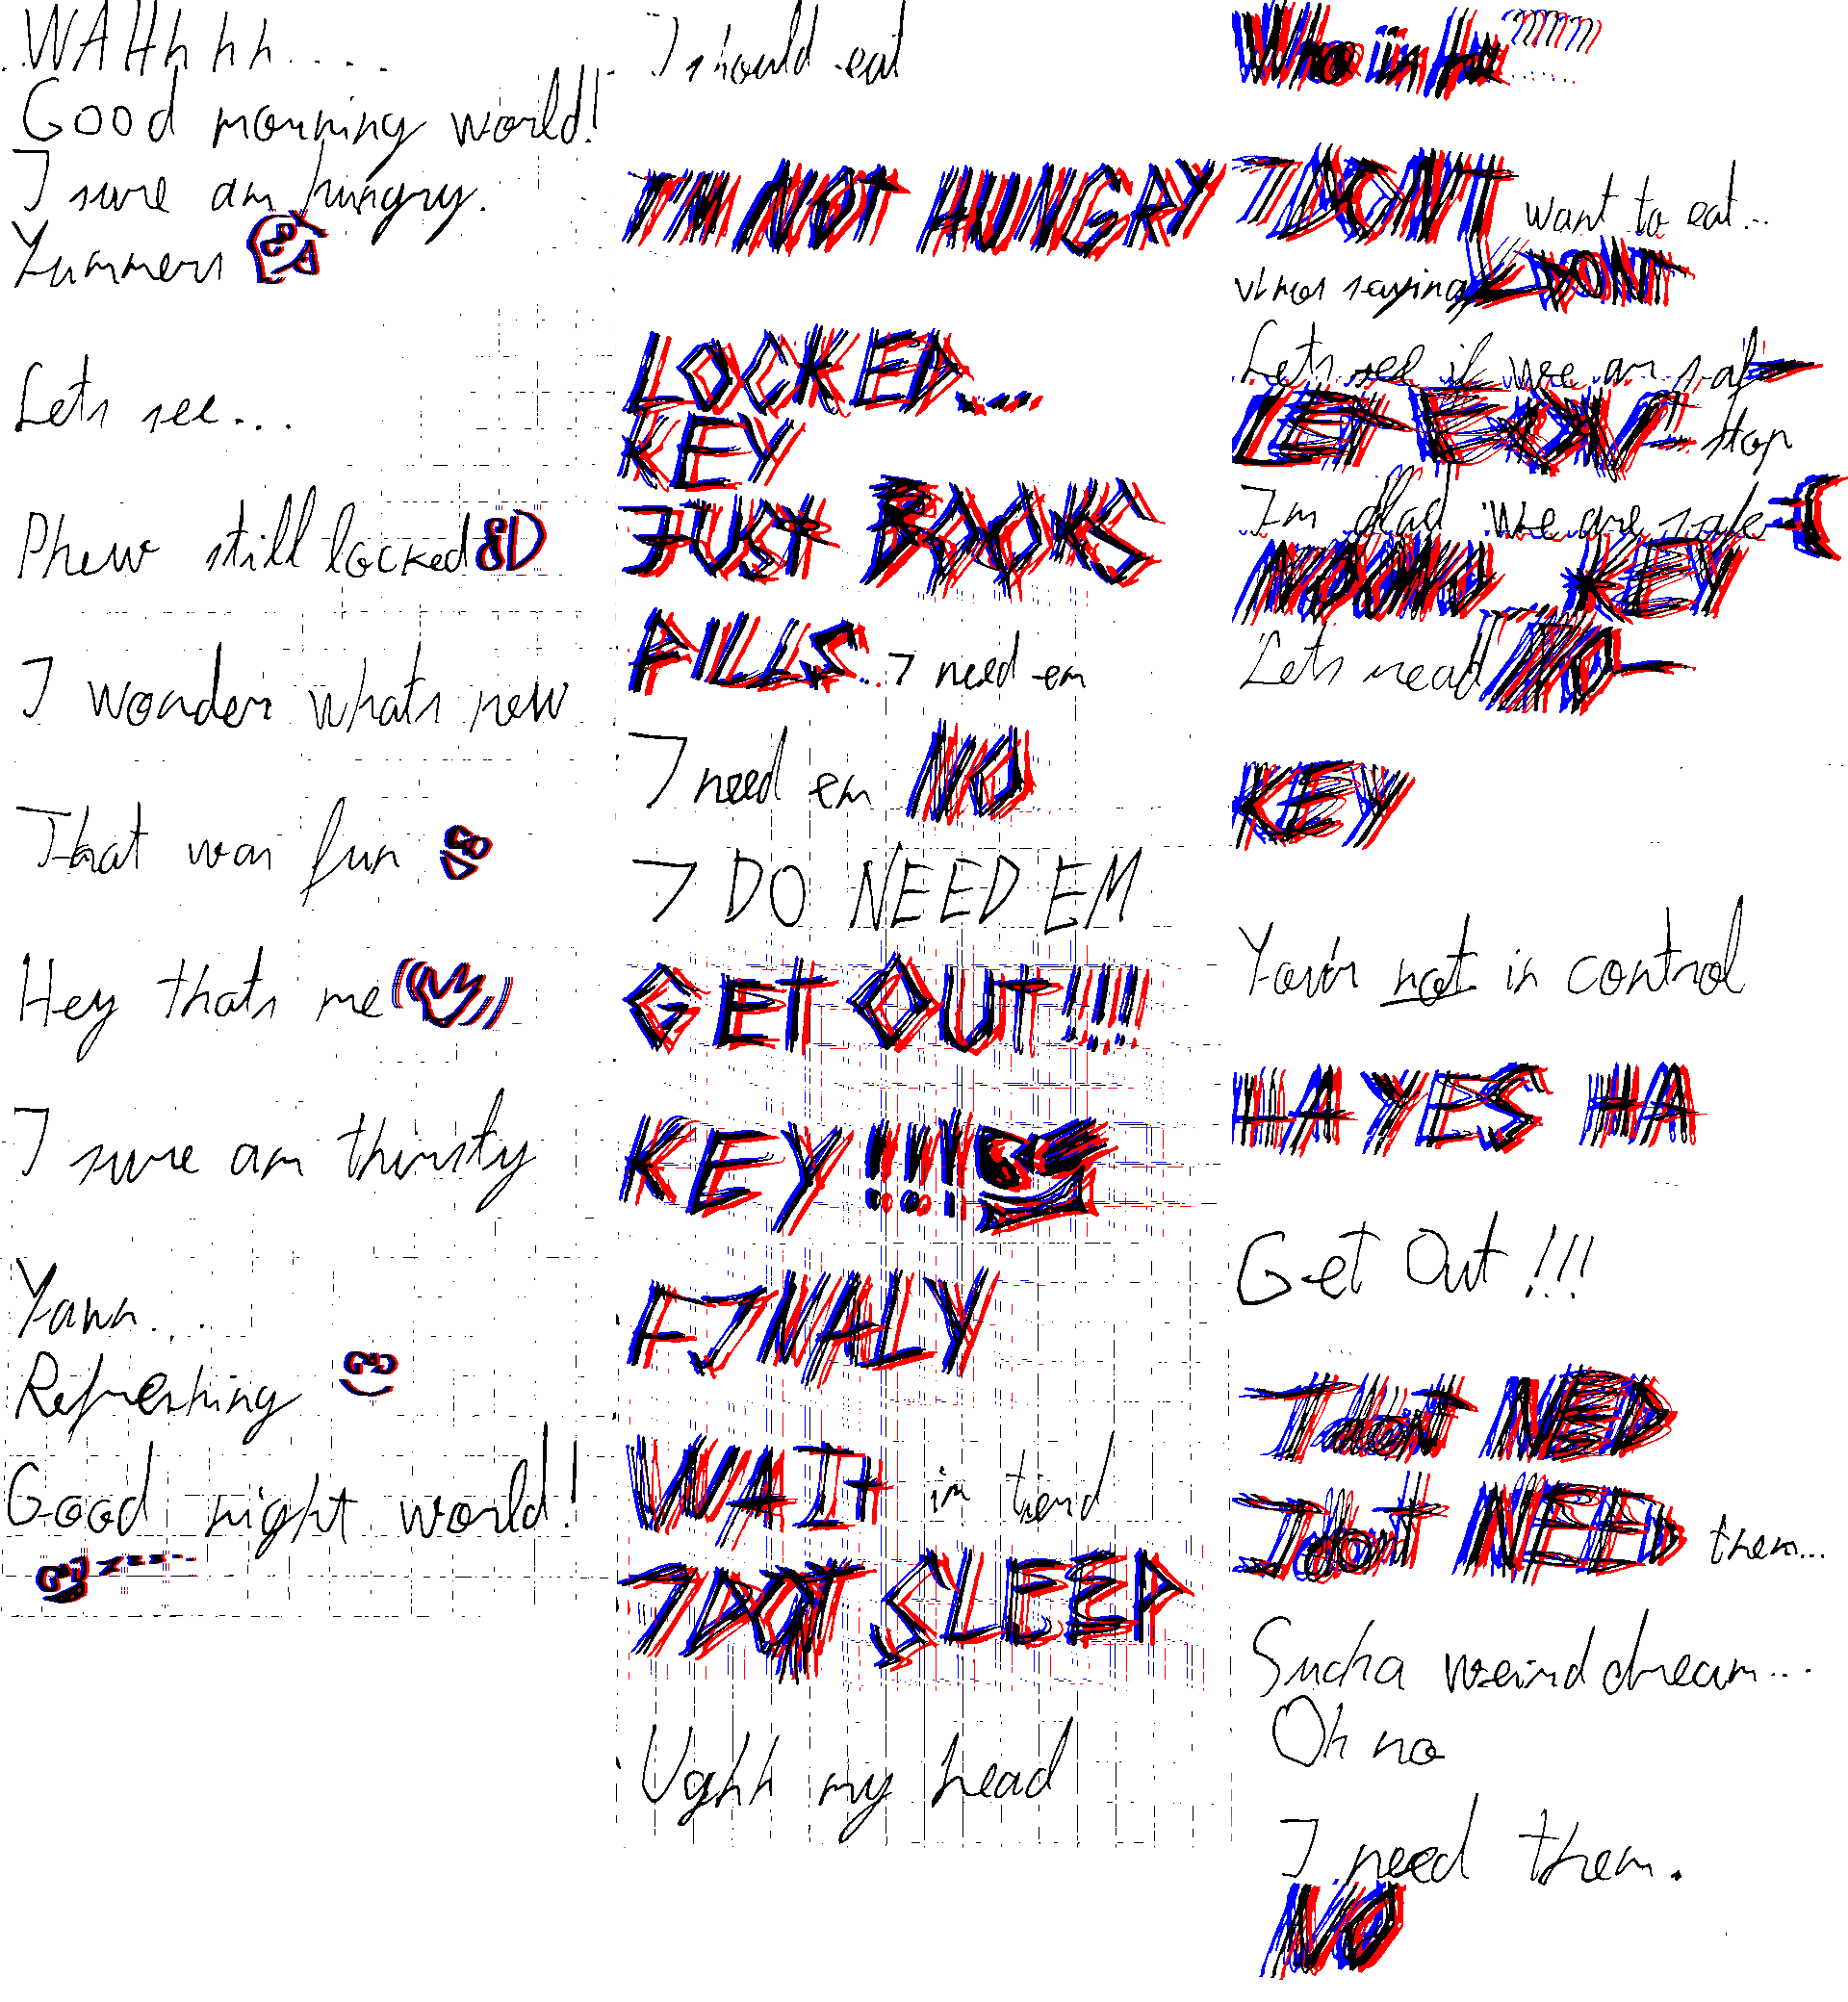 WAHhhh....
Good morning world!
I sure am hungry.
Yummers
Lets see...
Phew still locked
I wonder whats new
That was fun
Hey thats me
I sure am thirsty
Yawn...
Refreshing
Good night world!
zzz....
I should eat
I'M NOT HUNGRY
LOCKED...
KEY
JUST BOOKS
PILLS... I need em
I need em NO
I DO NEED EM
GET OUT!!!!
KEY!!!!
FINALY
WAIT im tierd
I DOT SLEEP
Ughh my head
Who in the
I DONT want to eat...
whos saying I DONT
Lets see if wee are saf-
GET OUT- stop
Im glad we are safe
NO KEY
Lets read NO-
KEY
Your not in control
HA YES HA
Get Out!!!
I dont NEED
I dont NEED them...
Sucha weird dream...
Oh no
I need them.
NO